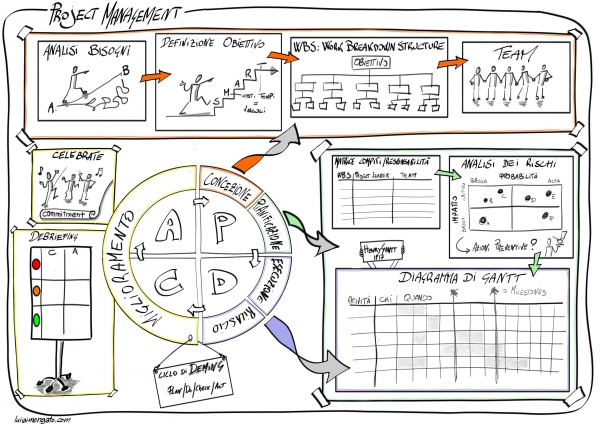 PROJECT MANAGEMENT
ANALISI BISOGNI
A
B
DEFINIZIONE OBIETTIVO
S
M
A
R
T
COSTI TEMPI
=
VINCOLI
WBS: WORK BREAKDOWN STRUCTURE
OBIETTIVO
TEAM
CELEBRATE
commitment
DEBRIEFING
C A
CONCEZIONE
PIANIFICAZIONE
ESECUZIONE
RILASCIO
MIGLIORAMENTO
A P
C D
CICLO DI DEMING
PLAN/DO/CHECK/ACT
MATRICE COMPITI/RESPONSABILITÀ
WBS PROJECT LEADER TEAM
ANALISI DEI RISCHI
PROBABILITÀ
BASSA ALTA
IMPATTO
BASSO
B
C
D
A
E
AZIONI PREVENTIVE?
HENRY GANTT
1917
DIAGRAMMA DI GANTT
ATTIVITÀ CHI QUANDO = MILESTONES
luigimengato.com